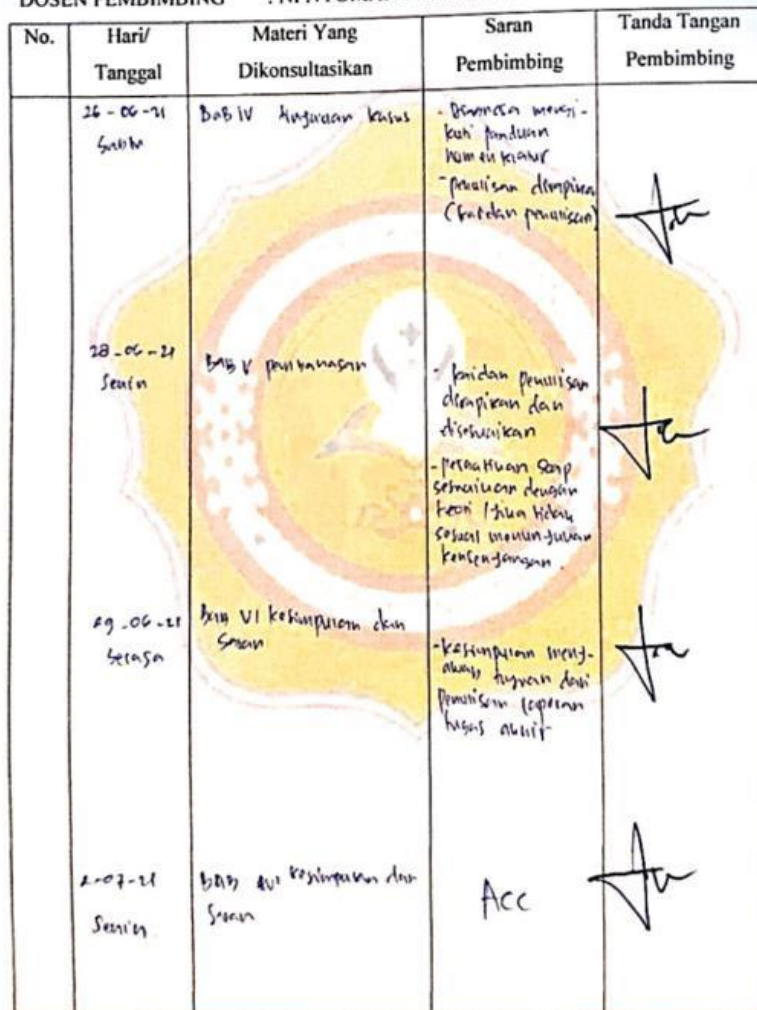 DOSEN PEMBIMBING
No. Hari/ Tanggal Materi Yang Dikonsultasikan Saran Pembimbing Tanda Tangan Pembimbing
26-06-21
BAB IV tinjauan kasus
- Diagnosa mengi-
kuti panduan
nomenklatur
- penulisan dirapikan
(kaidan penulisan)
28-06-21
Senin
BAB V pembahasan
- kaidan penulisan
dirapikan dan
disesuaikan
- perhatikan soap
sesuaikan dengan
teori / jika tidak
sesuai menunjukan
kesenjangan
29-06-21
Selasa
BAB VI kesimpulan dan
Saran
- kesimpulan menj-
awab tujuan dari
penulisan laporan
tugas akhir
-07-21
Senin
BAB kesimpulan dan
Saran
Acc